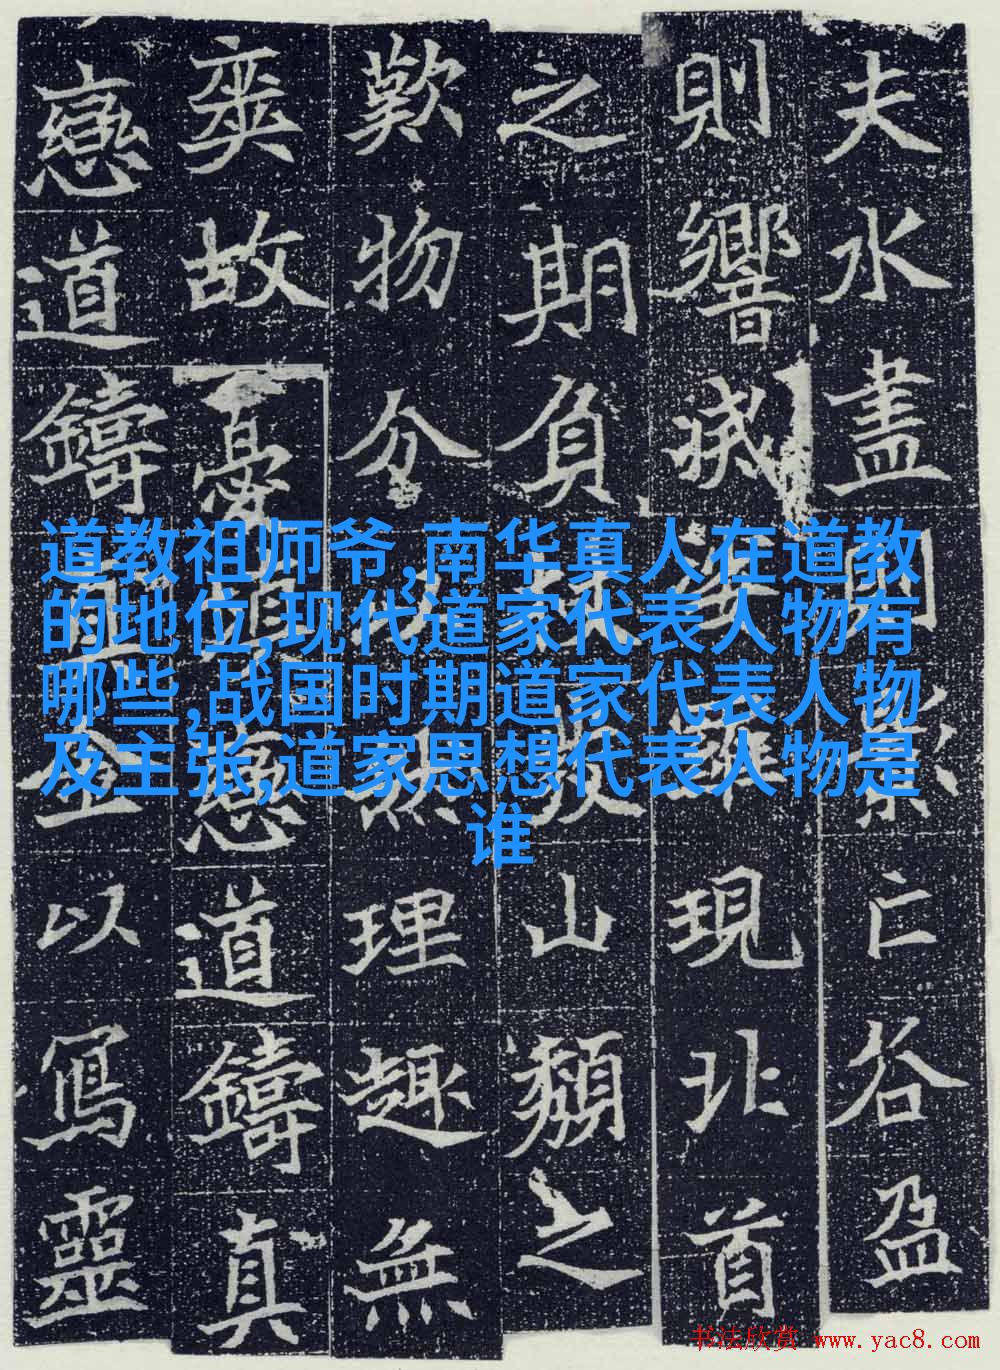 夫水盡亡谷盈
則響滅現北首
之期負山頹之
歎物分理趣無
爽故戀道鑄真
戀道鑄金以寫靈
道教祖师爷,南华真人在道教
的地位,现代道家代表人物有
哪些,战国时期道家代表人物
及主张,道家思想代表人物是
谁
书法欣赏 www.yac8.com